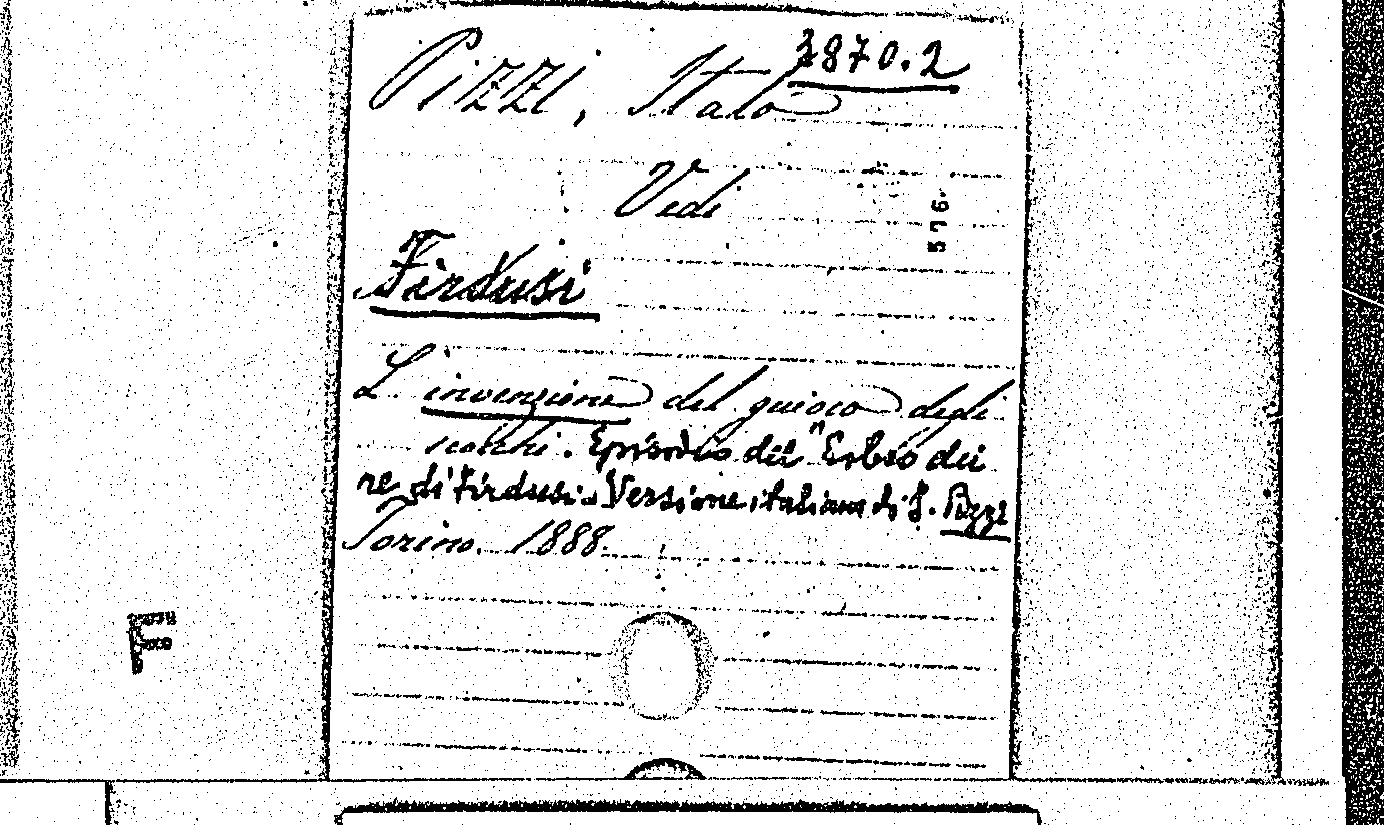 3870.2
Pizzi, Italo
Vedi
576.
Firdusi
L'invenzione del guioco degli
scacchi. Episodio del "Libro dei
re di Firdusi. Versione italiana di I. Pizzi
Torino. 1888.